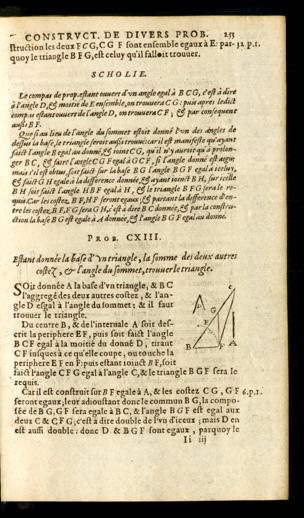 CONSTRVCT. DE DIVERS PROB. 253
struction les deux FCG, CG F sont ensemble egaux à E: par- 32. p. 1.
quoy le triangle B F G, est celuy qu'il falloit trouver.
SCHOLIE.
Le compas de prop. estant ouvert d'vn angle egal à B C G, c'est à dire
à l'angle D, & moitié de E ensemble, on trouvera C G: puis apres ledict
compas estant ouvert de l'angle D, on trouvera C F; & par consequent
aussi B F.
Que si au lieu de l'angle du sommet estoit donné l'vn des angles de
dessus la base, le triangle seroit aussi trouvé: car il est manifeste qu'ayant
faict l'angle B egal au donné, & mené C G, qu'il n'y auroit qu'à prolon-
ger B C, & faire l'angle C G F egal à G C F, si l'angle donné est aigu
mais s'il est obtus, soit faict sur la base B G l'angle B G F egal à iceluy,
& faict G H egale à la difference donnée, & ayant ioinct B H, sur icelle
B H soit faict l'angle H B F egal à H, & le triangle B F G sera le re-
quis. Car les costez, B F, H F seront egaux, & partant la difference d'en-
tre les costez, B F, F G sera G H, c'est à dire B C donnée, & par la constru-
ction la base B G est egale à A donnée, & l'angle B G F egal au donné.
PROB. CXIII.
Estant donnée la base d'vn triangle, la somme des deux autres
costez, & l'angle du sommet, trouver le triangle.
SOit donnée A la base d'vn triangle, & BC
l'aggregé des deux autres costez, & l'an-
gle D egal à l'angle du sommet: & il faut
trouver le triangle.
Du centre B, & de l'intervale A soit des-
crit la periphere EF, puis soit faict l'angle
B C F egal à la moitié du donné D, tirant
C F iusques à ce qu'elle coupe, ou touche la
periphere E F en F: puis estant ioinct B F, soit
faict l'angle C F G egal à l'angle C, & le triangle B G F sera le
requis.
Car il est construit sur B F egale à A, & les costez C G, G F 6. p. 1.
seront egaux; leur adioustant donc le commun B G, la compo-
sée de B G, G F sera egale à B C, & l'angle B G F est egal aux
deux C & C F G; c'est à dire double de l'vn d'iceux; mais D en
est aussi double: donc D & B G F sont egaux, parquoy le
Ii iij